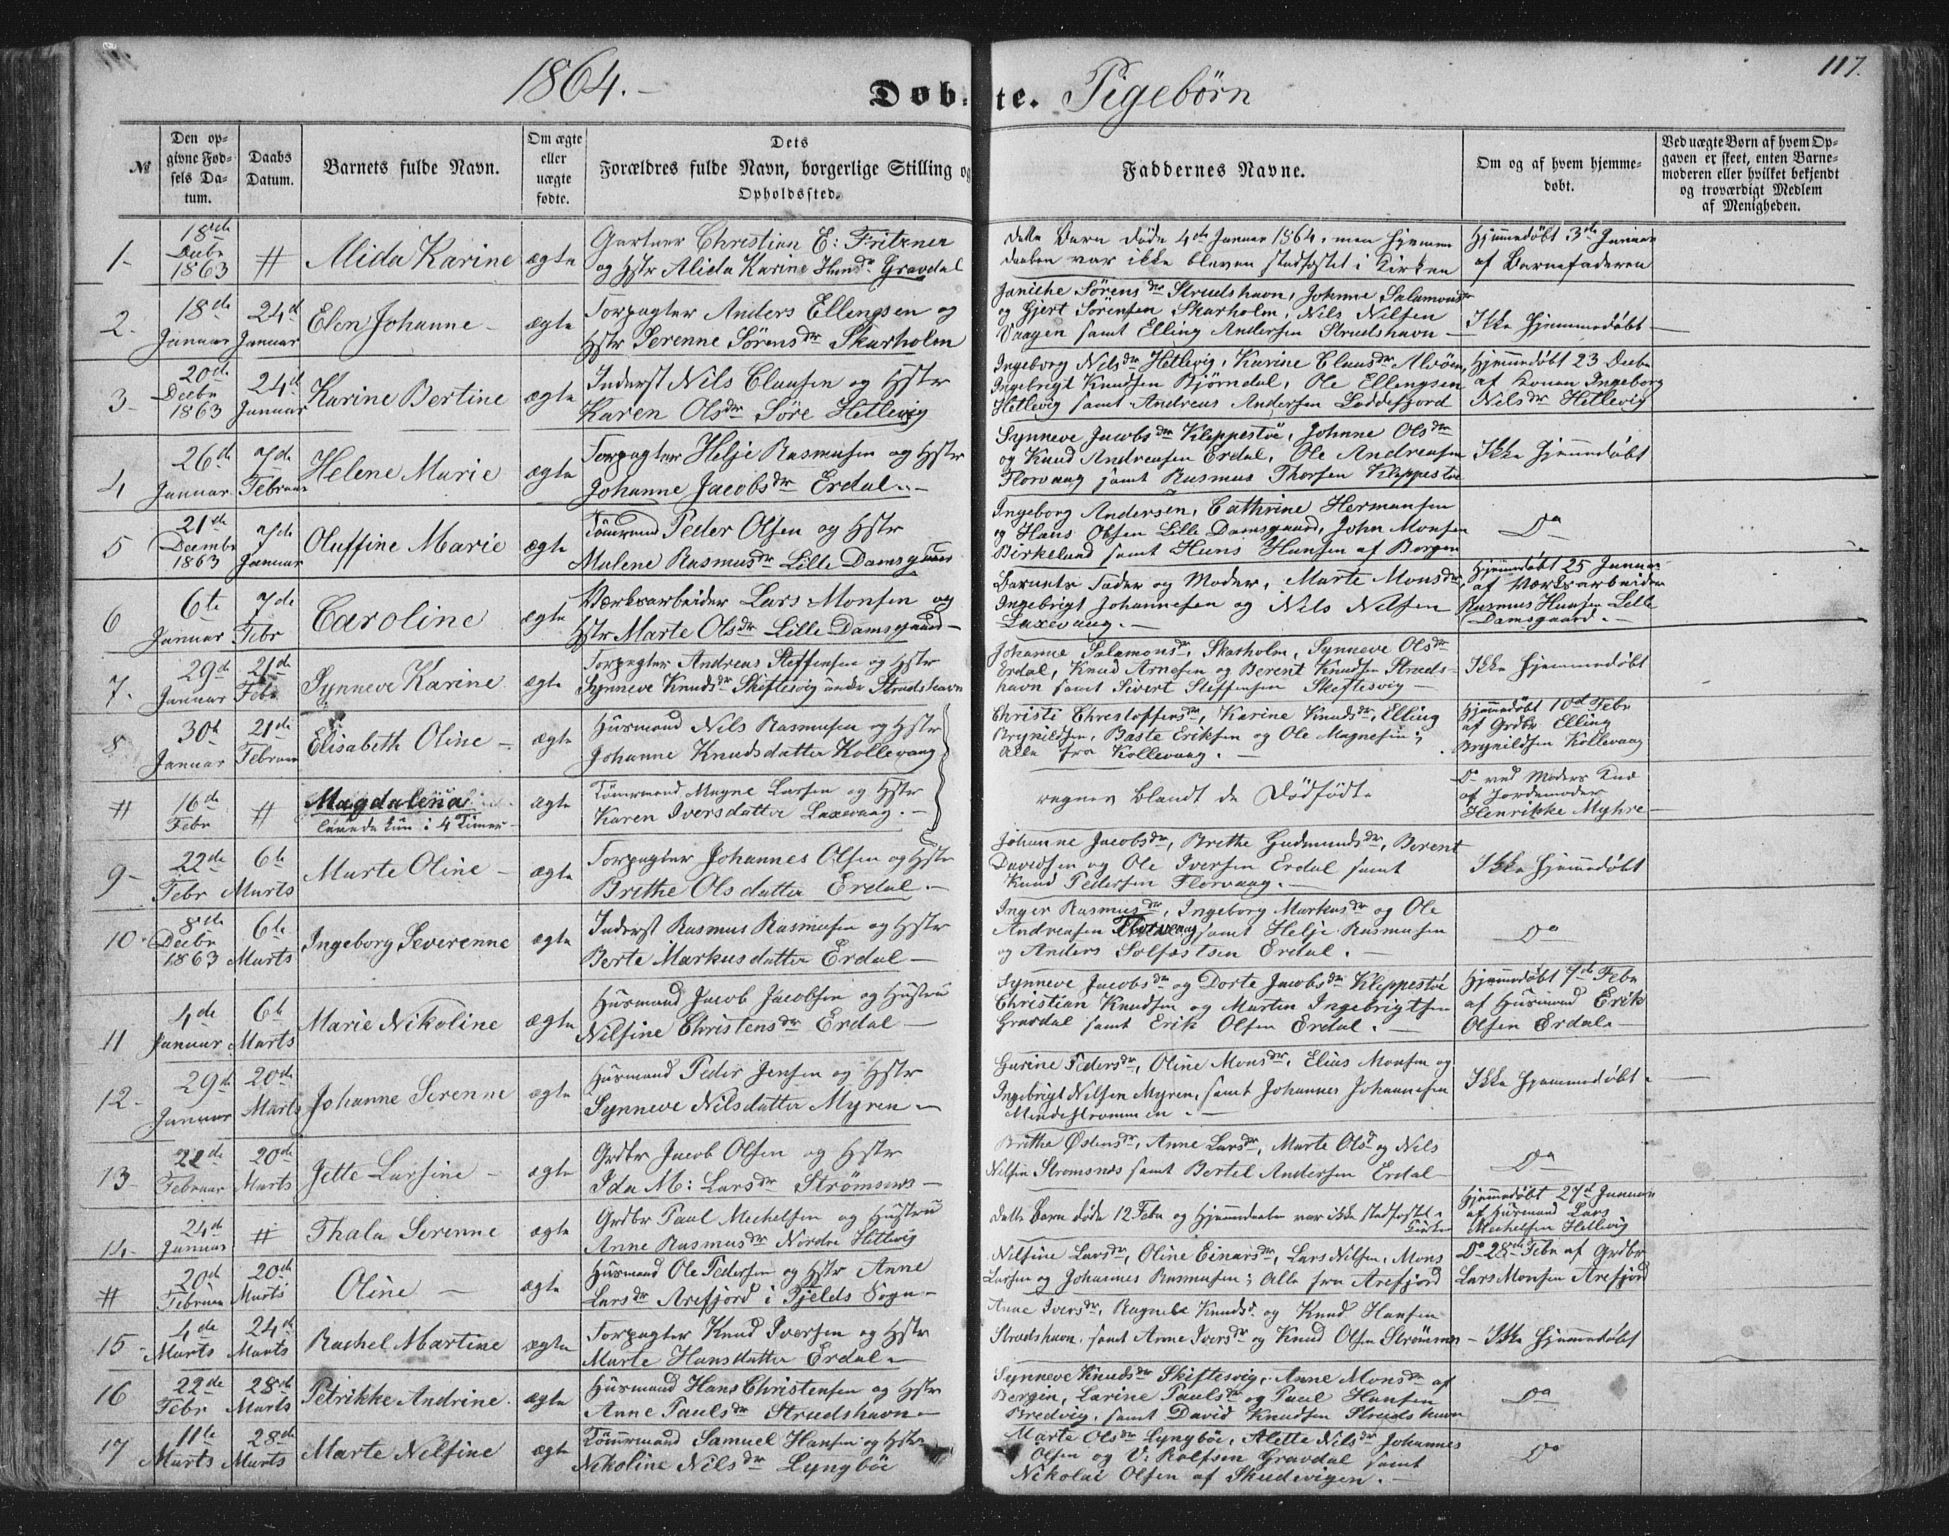 1864.
Døbte. Pigebørn
117.
№
Den opgivne Fødsels Datum.
Daabs Datum.
Barnets fulde Navn.
Om ægte eller uægte fødte.
Dets Forældres fulde Navn, borgerlige Stilling og Opholdssted.
Faddernes Navne.
Om og af hvem hjemmedøbt.
Ved uægte Børn af hvem Opgaven er skeet, enten Barnemoderen eller hvilket bekjendt og troværdigt Medlem af Menigheden.
1-
18de
Decbr
1863
#
Alida Karine
ægte
Gartner Christian E: Fritzner
og Hstr Alida Karine Gravdal
Dette Barn døde 4de Januar 1864, men Hjemme
daaben var ikke bleven stadfæstet i Kirken
Hjemmedøbt 3de Januar
af Barnefaderen
2-
18de
Januar
24d
Januar
Elen Johanne -
ægte
Torpagter Anders Ellengsen og
Hstr Serenne Sørensdr Skarholm
Janiche Sørensdr Strudshavn, Johanne Salamonsdr
og Gjert Sørensen Skarholm, Nils Nilsen
Vaagen samt Elling Andersen Strudshavn -
Ikke Hjemmedøbt -
3-
20de
Decbr
1863
24d
Januar
Karine Bertine
ægte
Inderst Nils Clausen og Hstr
Karen Olsdr Søre Hetlevig
Ingeborg Nilsdr Hetlevig, Karine Clausdr Alvøen,
Ingebrigt Knudsen Bjørndal, Ole Ellengsen
Hetlevig samt Andreas Andersen Loddefjord
Hjemmedøbt 23 Decbr
af Konen Ingeborg
Nilsdr Hetlevig
4
26d
Januar
7de
Februar
Helene Marie
ægte
Torpagter Helje Rasmusen og Hstr
Johanne Jacobsdr Erdal. -
Synneve Jacobsdr Kleppestøe, Johanne Olsdr
og Knud Andreasen Erdal, Ole Andreasen
Florvaag samt Rasmus Thorsen Kleppestøe
Ikke Hjemmedøbt
5
21de
Decembr
1863
7de
Januar
Oluffine Marie
ægte
Tømrmand Peder Olsen og Hstr
Malene Rasmusdr Lille Damsgaard
Ingeborg Andersen, Cathrine Hermansen
og Hans Olsen Lille Damsgaard, John Monsen
Birkeland samt Hans Hansen af Bergen
Do
6
6te
Januar
7de
Febr
Caroline
ægte
Værksarbeider Lars Monsen og
Hstr Marte Olsdr Lille Damsgaard -
Barnets Fader og Moder, Marte Monsdr,
Ingebrigt Johannesen og Nils Nilsen
Laxevaag. -
Hjemmedøbt 25 Januar
af Værksarbeider
Rasmus Hansen Lille
Damsgaard. -
7-
29d
Januar
21d
Febr
Synneve Karine
ægte
Torpagter Andreas Steffensen og Hstr
Synneve Knudsdr Skiftesvig under Strudshavn
Johanne Salamonsdr, Skarholm, Synneve Olsdr
Erdal, Knud Arnesen og Berent Knudsen Struds-
havn samt Sivert Steffensen Skeftesvig -
Ikke Hjemmedøbt
8
30d
Januar
21de
Februar
Elisabeth Oline -
ægte
Husmand Nils Rasmusen og Hstr
Johanne Knudsdatter Kollevaag
Christi Christoffersdr, Karine Knudsdr, Elling
Brynildsen, Baste Eriksen og Ole Magnesen;
Alle fra Kollevaag. -
Hjemmedøbt 10d Febr
af Grdbr Elling
Brynildsen Kollevaag
#
16d
Febr
#
Magdalena
levede kun i 4 Timer -
ægte
Tømrmand Magne Larsen og Hstr
Karen Iversdatter Laxevaag. -
regnes blandt de Dødfødte
Do ved Moders Knæ
af Jordemoder
Henrikke Myhre -
9-
22de
Febr
6te
Marts
Marte Oline -
ægte
Torpagter Johannes Olsen og Hstr
Brithe Olsdatter Erdal. -
Johanne Jacobsdr, Brithe Gudmundsdr, Berent
Davidsen og Ole Iversen Erdal samt
Knud Pedersen Florvaag. -
Ikke Hjemmedøbt
10
8de
Decbr
1863
6te
Marts
Ingeborg Severenne
ægte
Inderst Rasmus Rasmusen og Hstr
Berte Markusdatter Erdal -
Inger Rasmusdr, Ingeborg Markusdr og Ole
Andreasen Florvaag samt Helje Rasmusen
og Anders Solfæstsen Erdal. -
Do
11
4de
Januar
6te
Marts
Marie Nikoline
ægte
Husmand Jacob Jacobsen og Hustru
Nilsine Christensdr Erdal -
Synneve Jacobsdr og Dorte Jacobsdr Kleppestøe
Christian Knudsen og Martin Ingebrigtsen
Gravdal samt Erik Olsen Erdal. -
Hjemmedøbt 7de Febr
af Husmand Erik
Olsen Erdal -
12-
29d
Januar
20de
Marts
Johanne Serenne
ægte
Husmand Peder Jensen og Hstr
Synneve Nilsdatter Myren -
Gurine Pedersdr, Oline Monsdr, Elias Monsen og
Ingebrigt Nilsen Myren, samt Johannes Johannesen
Mindestrømmen. -
Ikke Hjemmedøbt -
13-
22de
Februar
20de
Marts
Jette Larsine -
ægte
Grdbr Jacob Olsen og Hstr
Ida M: Larsdr Strømsnes -
Brithe Østensdr, Anne Larsdr, Marte Olsd og Nils
Nilsen Strømsnes samt Bertel Andersen Erdal -
Do
14.
24d
Januar
#
Thala Serenne
ægte
Grdbr Paul Mechelsen og Hustru
Anne Rasmusdr Nordre Hetlevig
Dette Barn døde 12. Febr og Hjemmedaaben var ikke stadfæstet i
Kirken
Hjemmedøbt 27d Januar
af Husmand Lars
Mechelsen Hetlevig
#
20d
Februar
20d
Marts
Oline -
ægte
Husmand Ole Pedersen og Hstr Anne
Larsdr Arefjord i Fjelds Sogn -
Nilsine Larsdr, Oline Einarsdr, Lars Nilsen, Mons
Larsen og Johannes Rasmusen; Alle fra Arefjord
Do 28de Febr af Grdbr
Lars Monsen Arefjord
15
4de
Marts
24d
Marts
Rachel Martine
ægte
Torpagter Knud Iversen og Hstr
Marte Hansdatter Erdal -
Anne Iversdr, Ragnele Knudsd og Knud Hansen
Strudshavn, samt Anne Iversdr og Knud Olsen Strømsnes
- Ikke Hjemmedøbt
16
22de
Febr
28d
Marts
Petrikke Andrine.
ægte
Husmand Hans Christensen og Hstr
Anne Paulsdr Strudshavn -
Synneve Knudsdr Skiftesvig, Anne Monsdr af
Bergen, Larine Paulsdr og Paul Hansen
Bredvig, samt David Knudsen Strudshavn
Do
17
11te
Marts
28de
Marts
Marte Nilsine
ægte
Tømrmand Samuel Hansen og Hstr
Nikoline Nilsdr Lyngbøe
Marte Olsdr Lyngbøe, Alette Nilsdr Johannes
Olsen og V: Rolfsen Gravdal samt
Nikolai Olsen af Skudevigen. -
Do